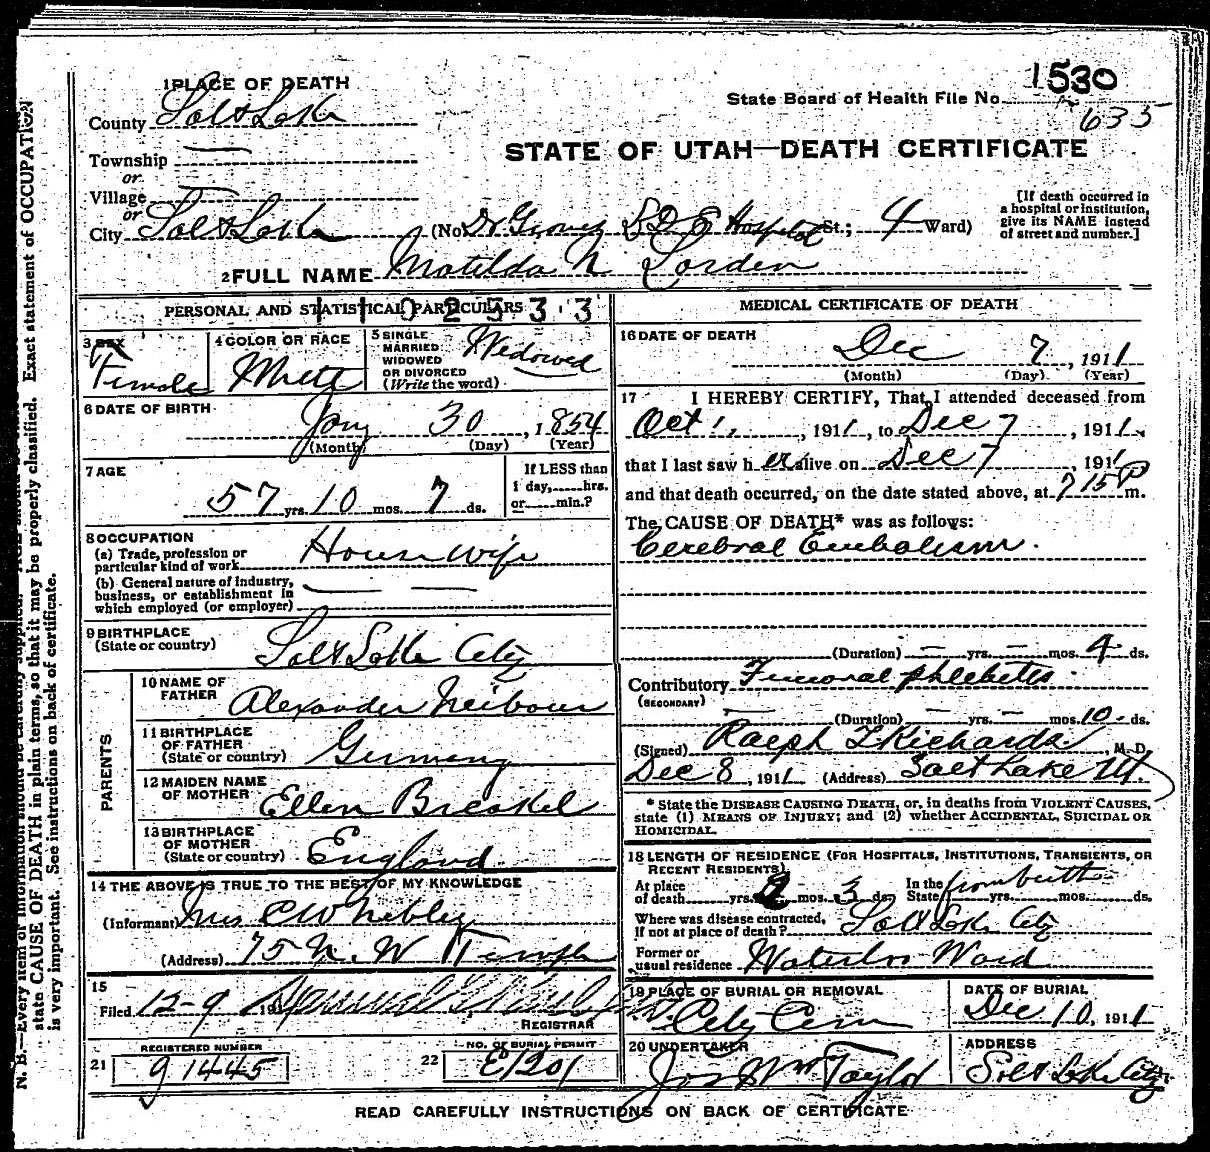 1530
635
State Board of Health File No.
STATE OF UTAH—DEATH CERTIFICATE
1 PLACE OF DEATH
County Salt Lake
Township —
or
Village —
or
City Salt Lake (No. Dr Groves L D S Hospital St.; 4 Ward)
[If death occurred in a hospital or institution, give its NAME instead of street and number.]
2 FULL NAME Matilda N Lorden
PERSONAL AND STATISTICAL PARTICULARS
3 SEX
Female
4 COLOR OR RACE
White
5 SINGLE MARRIED WIDOWED OR DIVORCED (Write the word)
Widowed
6 DATE OF BIRTH
Jany 30, 1854
(Month) (Day) (Year)
7 AGE
57 yrs. 10 mos. 7 ds.
If LESS than 1 day, hrs. or min.?
8 OCCUPATION
(a) Trade, profession or particular kind of work House wife
(b) General nature of industry, business, or establishment in which employed (or employer) — —
9 BIRTHPLACE
(State or country) Salt Lake City
PARENTS
10 NAME OF FATHER Alexander Neibaur
11 BIRTHPLACE OF FATHER (State or country) Germany
12 MAIDEN NAME OF MOTHER Ellen Breakel
13 BIRTHPLACE OF MOTHER (State or country) England
14 THE ABOVE IS TRUE TO THE BEST OF MY KNOWLEDGE
(Informant) Mrs C W Nibley
(Address) 75 N. W Temple
15
Filed 12-9 191
REGISTRAR
REGISTERED NUMBER
21 91445
NO. OF BURIAL PERMIT
22 E1201
MEDICAL CERTIFICATE OF DEATH
16 DATE OF DEATH
Dec 7, 1911
(Month) (Day) (Year)
17 I HEREBY CERTIFY, That I attended deceased from
Oct 1, 1911, to Dec 7, 1911,
that I last saw h er alive on Dec 7, 1911
and that death occurred, on the date stated above, at 7 15 P m.
The CAUSE OF DEATH* was as follows:
Cerebral Embolism.
(Duration) — yrs. — mos. 4 ds.
Contributory Femoral phlebitis
(SECONDARY)
(Duration) — yrs. — mos. 10 ds.
(Signed) Ralph T Richards, M. D.
Dec 8, 1911 (Address) Salt Lake Ut.
* State the DISEASE CAUSING DEATH, or, in deaths from VIOLENT CAUSES,
state (1) MEANS OF INJURY; and (2) whether ACCIDENTAL, SUICIDAL OR
HOMICIDAL.
18 LENGTH OF RESIDENCE (FOR HOSPITALS, INSTITUTIONS, TRANSIENTS, OR
RECENT RESIDENTS)
At place of death yrs. 2 mos. 3 ds. In the State from birth yrs. mos. ds.
Where was disease contracted, if not at place of death? Salt Lake City
Former or usual residence Waterloo Ward
19 PLACE OF BURIAL OR REMOVAL
City Cem
DATE OF BURIAL
Dec 10, 1911
20 UNDERTAKER
Jos Wm Taylor
ADDRESS
Salt Lake City
READ CAREFULLY INSTRUCTIONS ON BACK OF CERTIFICATE
N. B.—Every item of information should be carefully supplied.
state CAUSE OF DEATH in plain terms, so that it may be properly classified. Exact statement of OCCUPATION
is very important. See instructions on back of certificate.